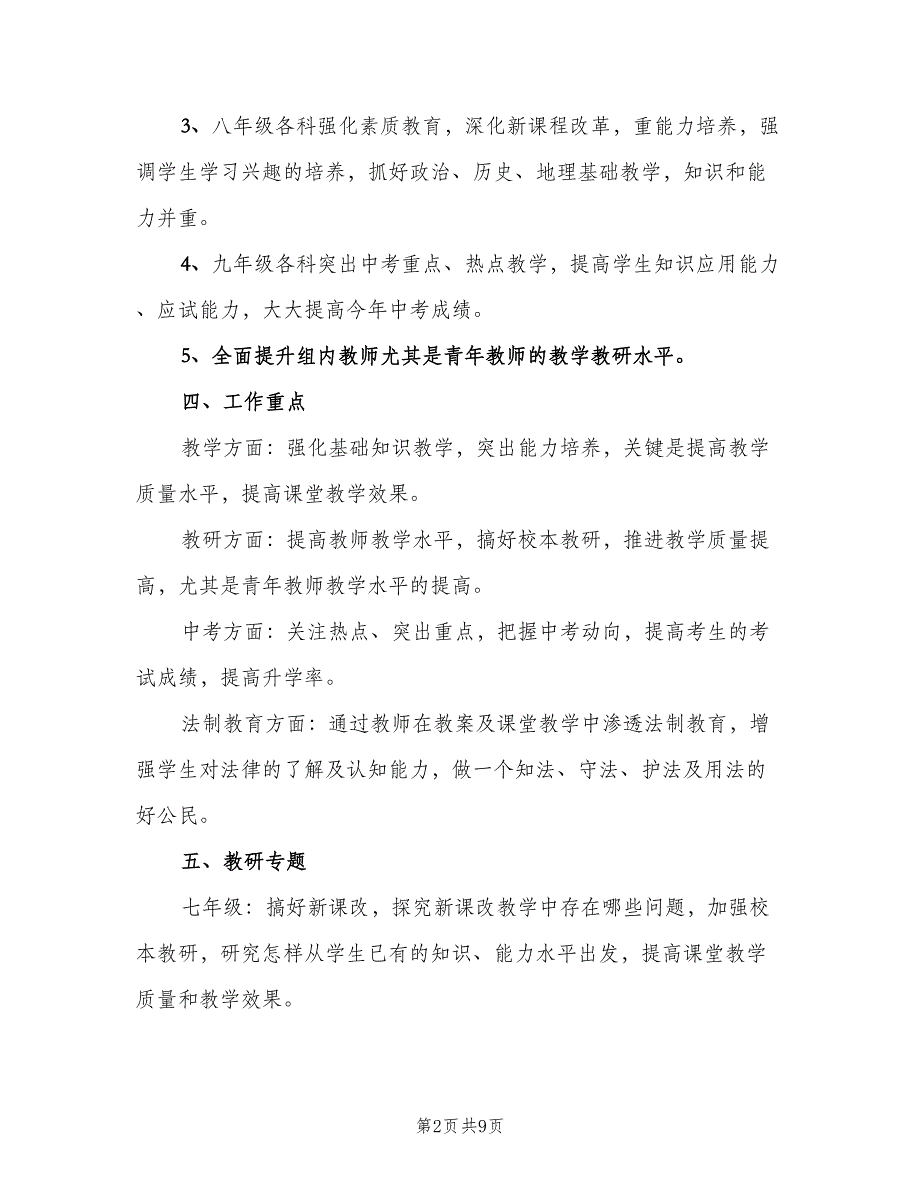 3、八年级各科强化素质教育，深化新课程改革，重能力培养，强
调学生学习兴趣的培养，抓好政治、历史、地理基础教学，知识和能
力并重。
4、九年级各科突出中考重点、热点教学，提高学生知识应用能力
、应试能力，大大提高今年中考成绩。
5、全面提升组内教师尤其是青年教师的教学教研水平。
四、工作重点
教学方面：强化基础知识教学，突出能力培养，关键是提高教学
质量水平，提高课堂教学效果。
教研方面：提高教师教学水平，搞好校本教研，推进教学质量提
高，尤其是青年教师教学水平的提高。
中考方面：关注热点、突出重点，把握中考动向，提高考生的考
试成绩，提高升学率。
法制教育方面：通过教师在教案及课堂教学中渗透法制教育，增
强学生对法律的了解及认知能力，做一个知法、守法、护法及用法的
好公民。
五、教研专题
七年级：搞好新课改，探究新课改教学中存在哪些问题，加强校
本教研，研究怎样从学生已有的知识、能力水平出发，提高课堂教学
质量和教学效果。
第2页 共9页